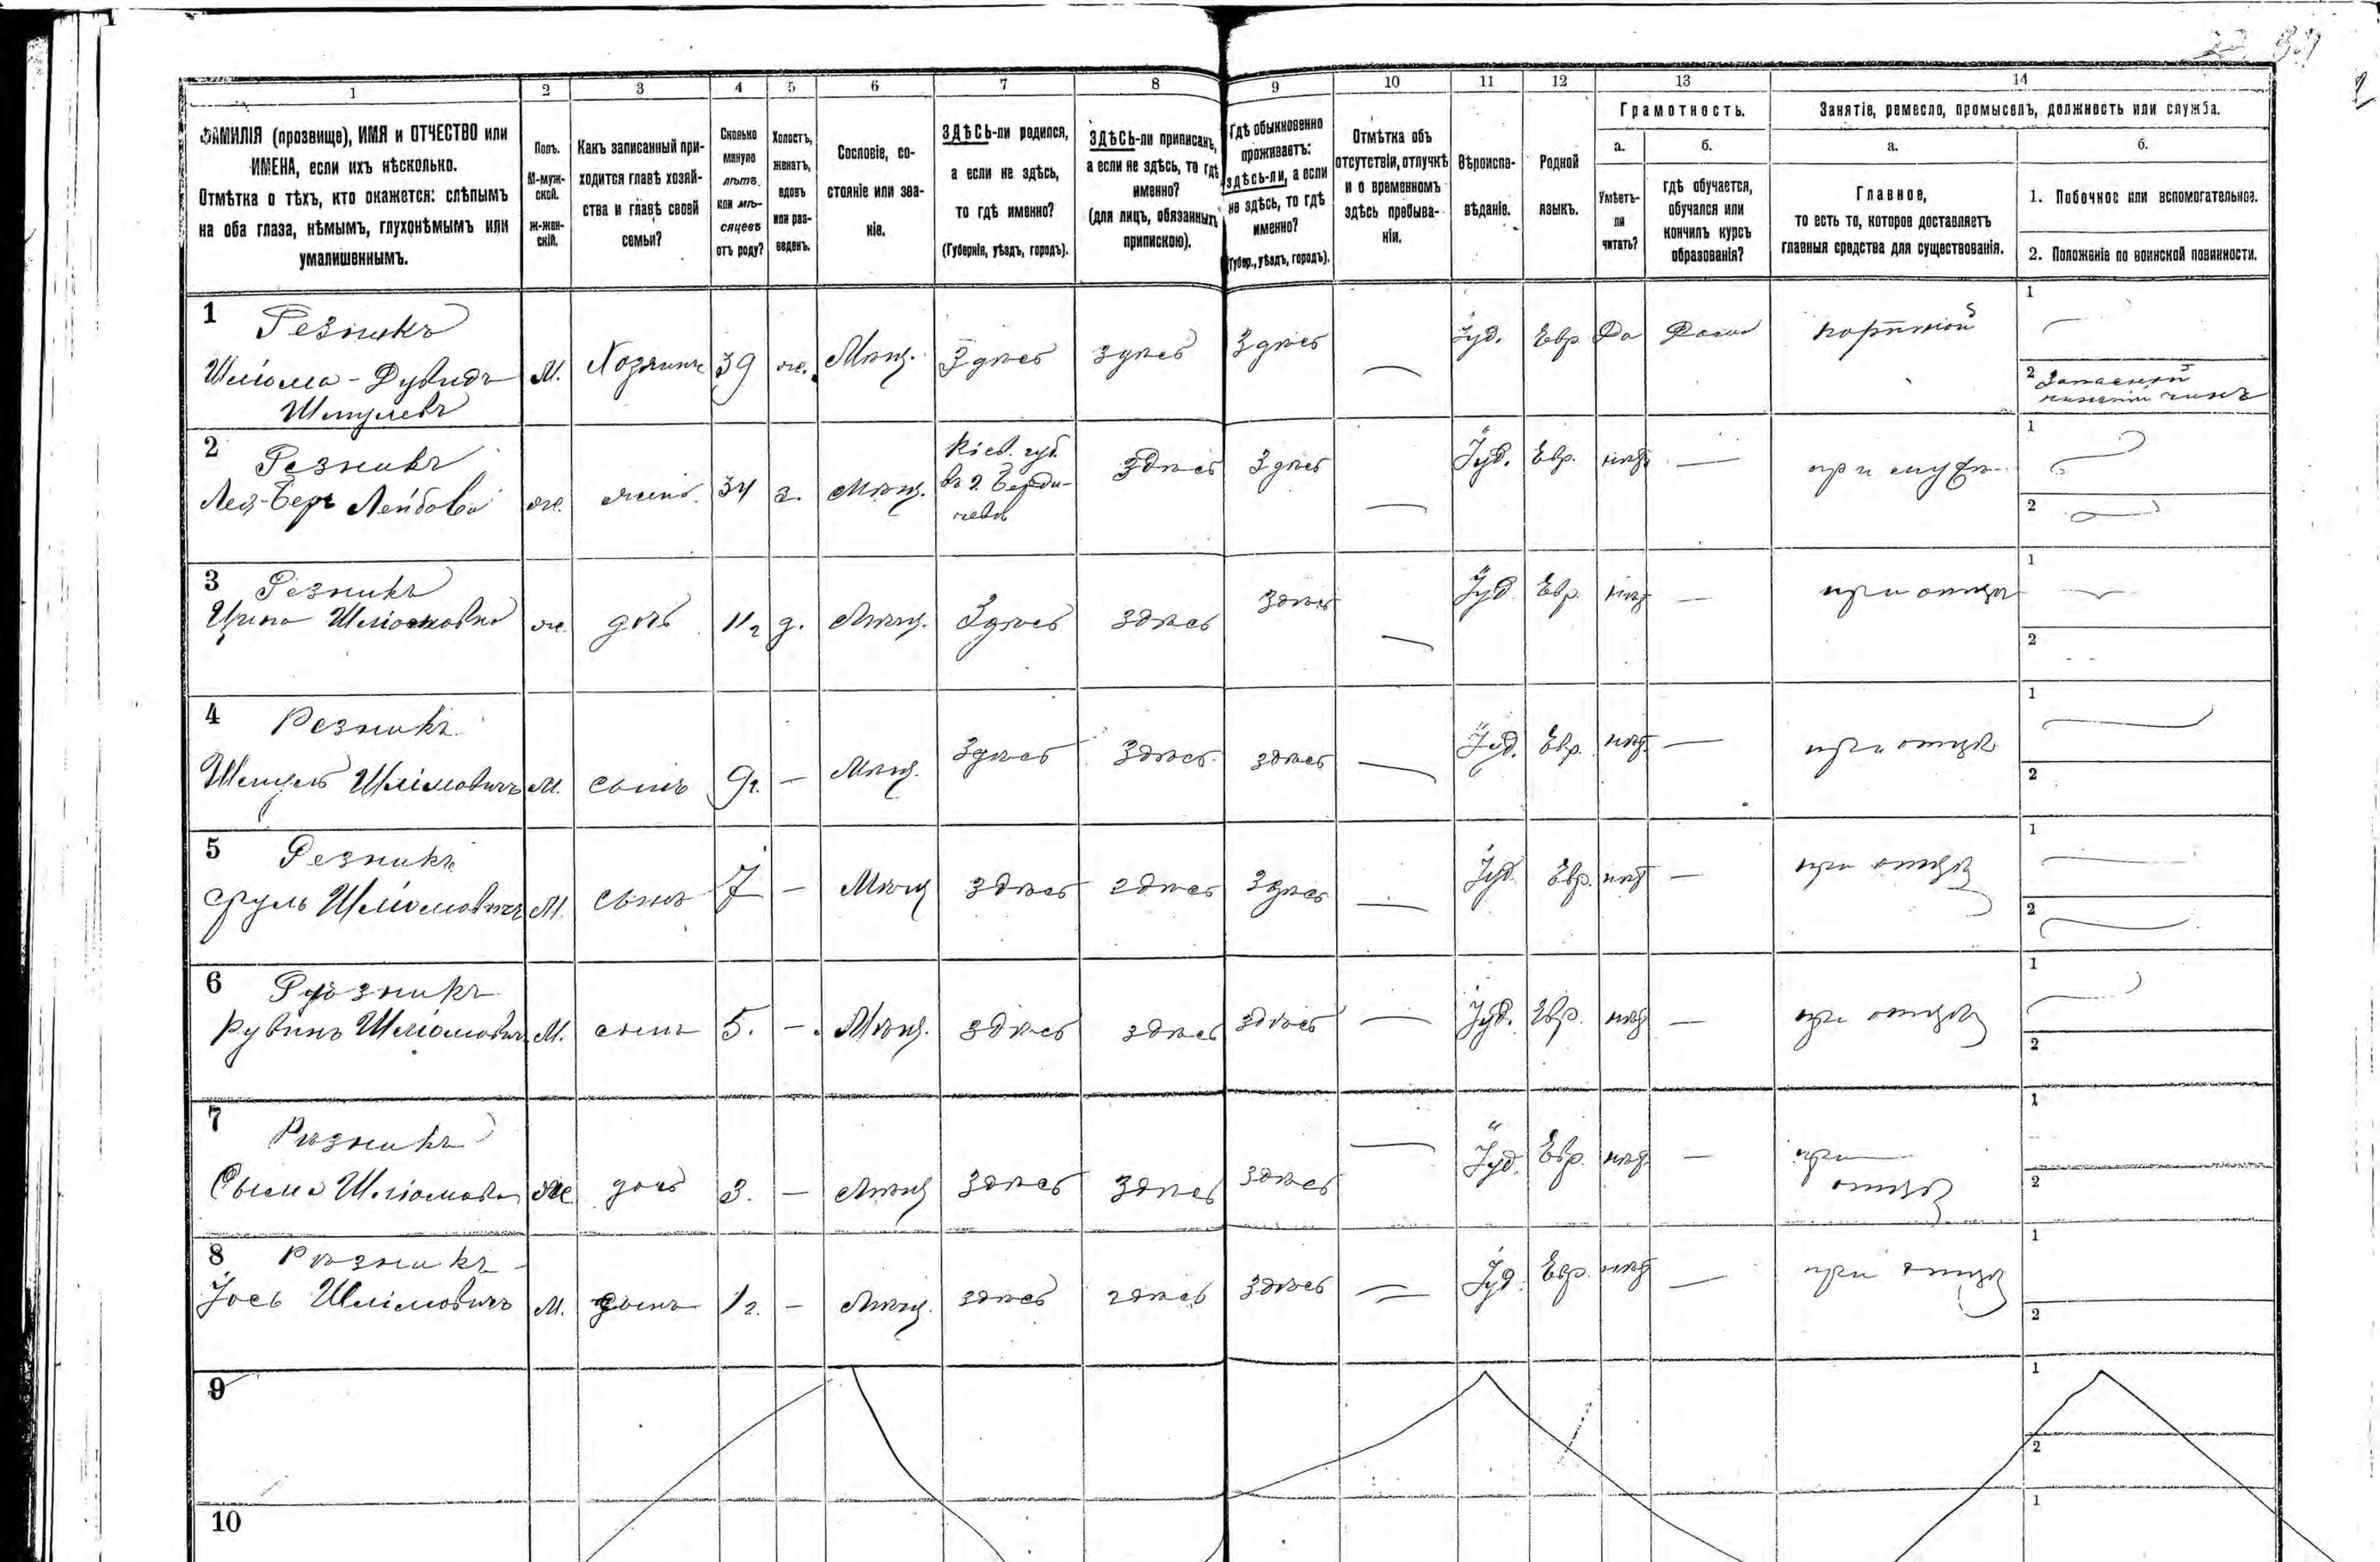 1 2 3 4 5 6 7 8 9 10 11 12 13 14
ФАМИЛІЯ (прозвище), ИМЯ и ОТЧЕСТВО или
ИМЕНА, если ихъ нѣсколько.
Отмѣтка о тѣхъ, кто окажется: слѣпымъ
на оба глаза, нѣмымъ, глухонѣмымъ или
умалишеннымъ.
Полъ.
М-муж-
ской.
Ж-жен-
скій.
Какъ записанный при-
ходится главѣ хозяй-
ства и главѣ своей
семьи?
Сколько
минуло
лѣтъ
или мѣ-
сяцевъ
отъ роду?
Холостъ,
женатъ,
вдовъ
или раз-
веденъ.
Сословіе, со-
стояніе или зва-
ніе.
ЗДѢСЬ-ли родился,
а если не здѣсь,
то гдѣ именно?
(Губернія, уѣздъ, городъ).
ЗДѢСЬ-ли приписанъ,
а если не здѣсь, то гдѣ
именно?
(для лицъ, обязанныхъ
припискою).
Гдѣ обыкновенно
проживаетъ:
здѣсь-ли, а если
не здѣсь, то гдѣ
именно?
(Губер., уѣздъ, городъ).
Отмѣтка объ
отсутствіи, отлучкѣ
и о временномъ
здѣсь пребыва-
ніи.
Вѣроиспо-
вѣданіе.
Родной
языкъ.
Грамотность.
а.
Умѣетъ-
ли
читать?
б.
гдѣ обучается,
обучался или
кончилъ курсъ
образованія?
Занятіе, ремесло, промыселъ, должность или служба.
а.
Главное,
то есть то, которое доставляетъ
главныя средства для существованія.
б.
1. Побочное или вспомогательное.
2. Положеніе по воинской повинности.
1 Резникъ
Шліома-Дувидъ М. Хозяинъ 39 ж. Мѣщ. Здѣсь здѣсь Здѣсь — Іуд. Евр Да Дома портной 1 —
Шмулевъ 2 Запасной
нижній чинъ
2 Резникъ
Лейбова ж. жена 34 з. Мѣщ. Кіев. губ.
въ г. Берди-
чевѣ
здѣсь Здѣсь — Іуд. Евр. нѣтъ — при мужѣ 1 2
3 Резникъ
Шліомовна ж. дочь 11 д. Мѣщ. Здѣсь здѣсь здѣсь — Іуд Евр. нѣтъ — при отцѣ 1 2
4 Резникъ
Шмуль Шліомовичъ М. сынъ 9 — Мѣщ. Здѣсь Здѣсь здѣсь — Іуд. Евр. нѣт. — при отцѣ 1 2
5 Резникъ
Сруль Шліомовичъ М. сынъ 7 — Мѣщ здѣсь здѣсь здѣсь — Іуд. Евр. нѣт — при отцѣ 1 2
6 Рѣзникъ
Рувинъ Шліомович М. сынъ 5. — Мѣщ. здѣсь здѣсь здѣсь — Іуд. Евр. нѣт — при отцѣ 1 2
7 Рѣзникъ
Шліомовна ж дочь 3. — Мѣщ здѣсь здѣсь здѣсь — Іуд. Евр. нѣт. — при
отцѣ 1 2
8 Рѣзникъ
Іось Шліомовичъ М. сынъ 1 г. — Мѣщ. здѣсь здѣсь здѣсь — Іуд. Евр. нѣт — при отцѣ 1 2
9 1 2
10 1